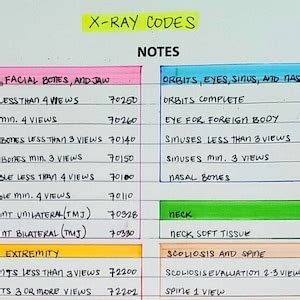 X-RAY CODES
NOTES
, FACIAL BONES, AND JAW
LESS THAN 4 VIEWS 70250
MIN. 4 VIEWS 70260
BONES LESS THAN 3 VIEWS 70140
BONES MIN. 3 VIEWS 70150
LESS THAN 4 VIEWS 70100
MIN. 4 VIEWS 70110
UNILATERAL (TMJ) 70328
BILATERAL (TMJ) 70330
EXTREMITY
LESS THAN 3 VIEWS 72200
3 OR MORE VIEWS 72202
ORBITS, EYES, SINUS, AND
ORBITS COMPLETE
EYE FOR FOREIGN BODY
SINUSES LESS THAN 3 VIEWS
SINUSES MIN. 3 VIEWS
NASAL BONES
NECK
NECK SOFT TISSUE
SCOLIOSIS AND SPINE
SCOLIOSIS EVALUATION 2-3
SPINE 1 VIEW